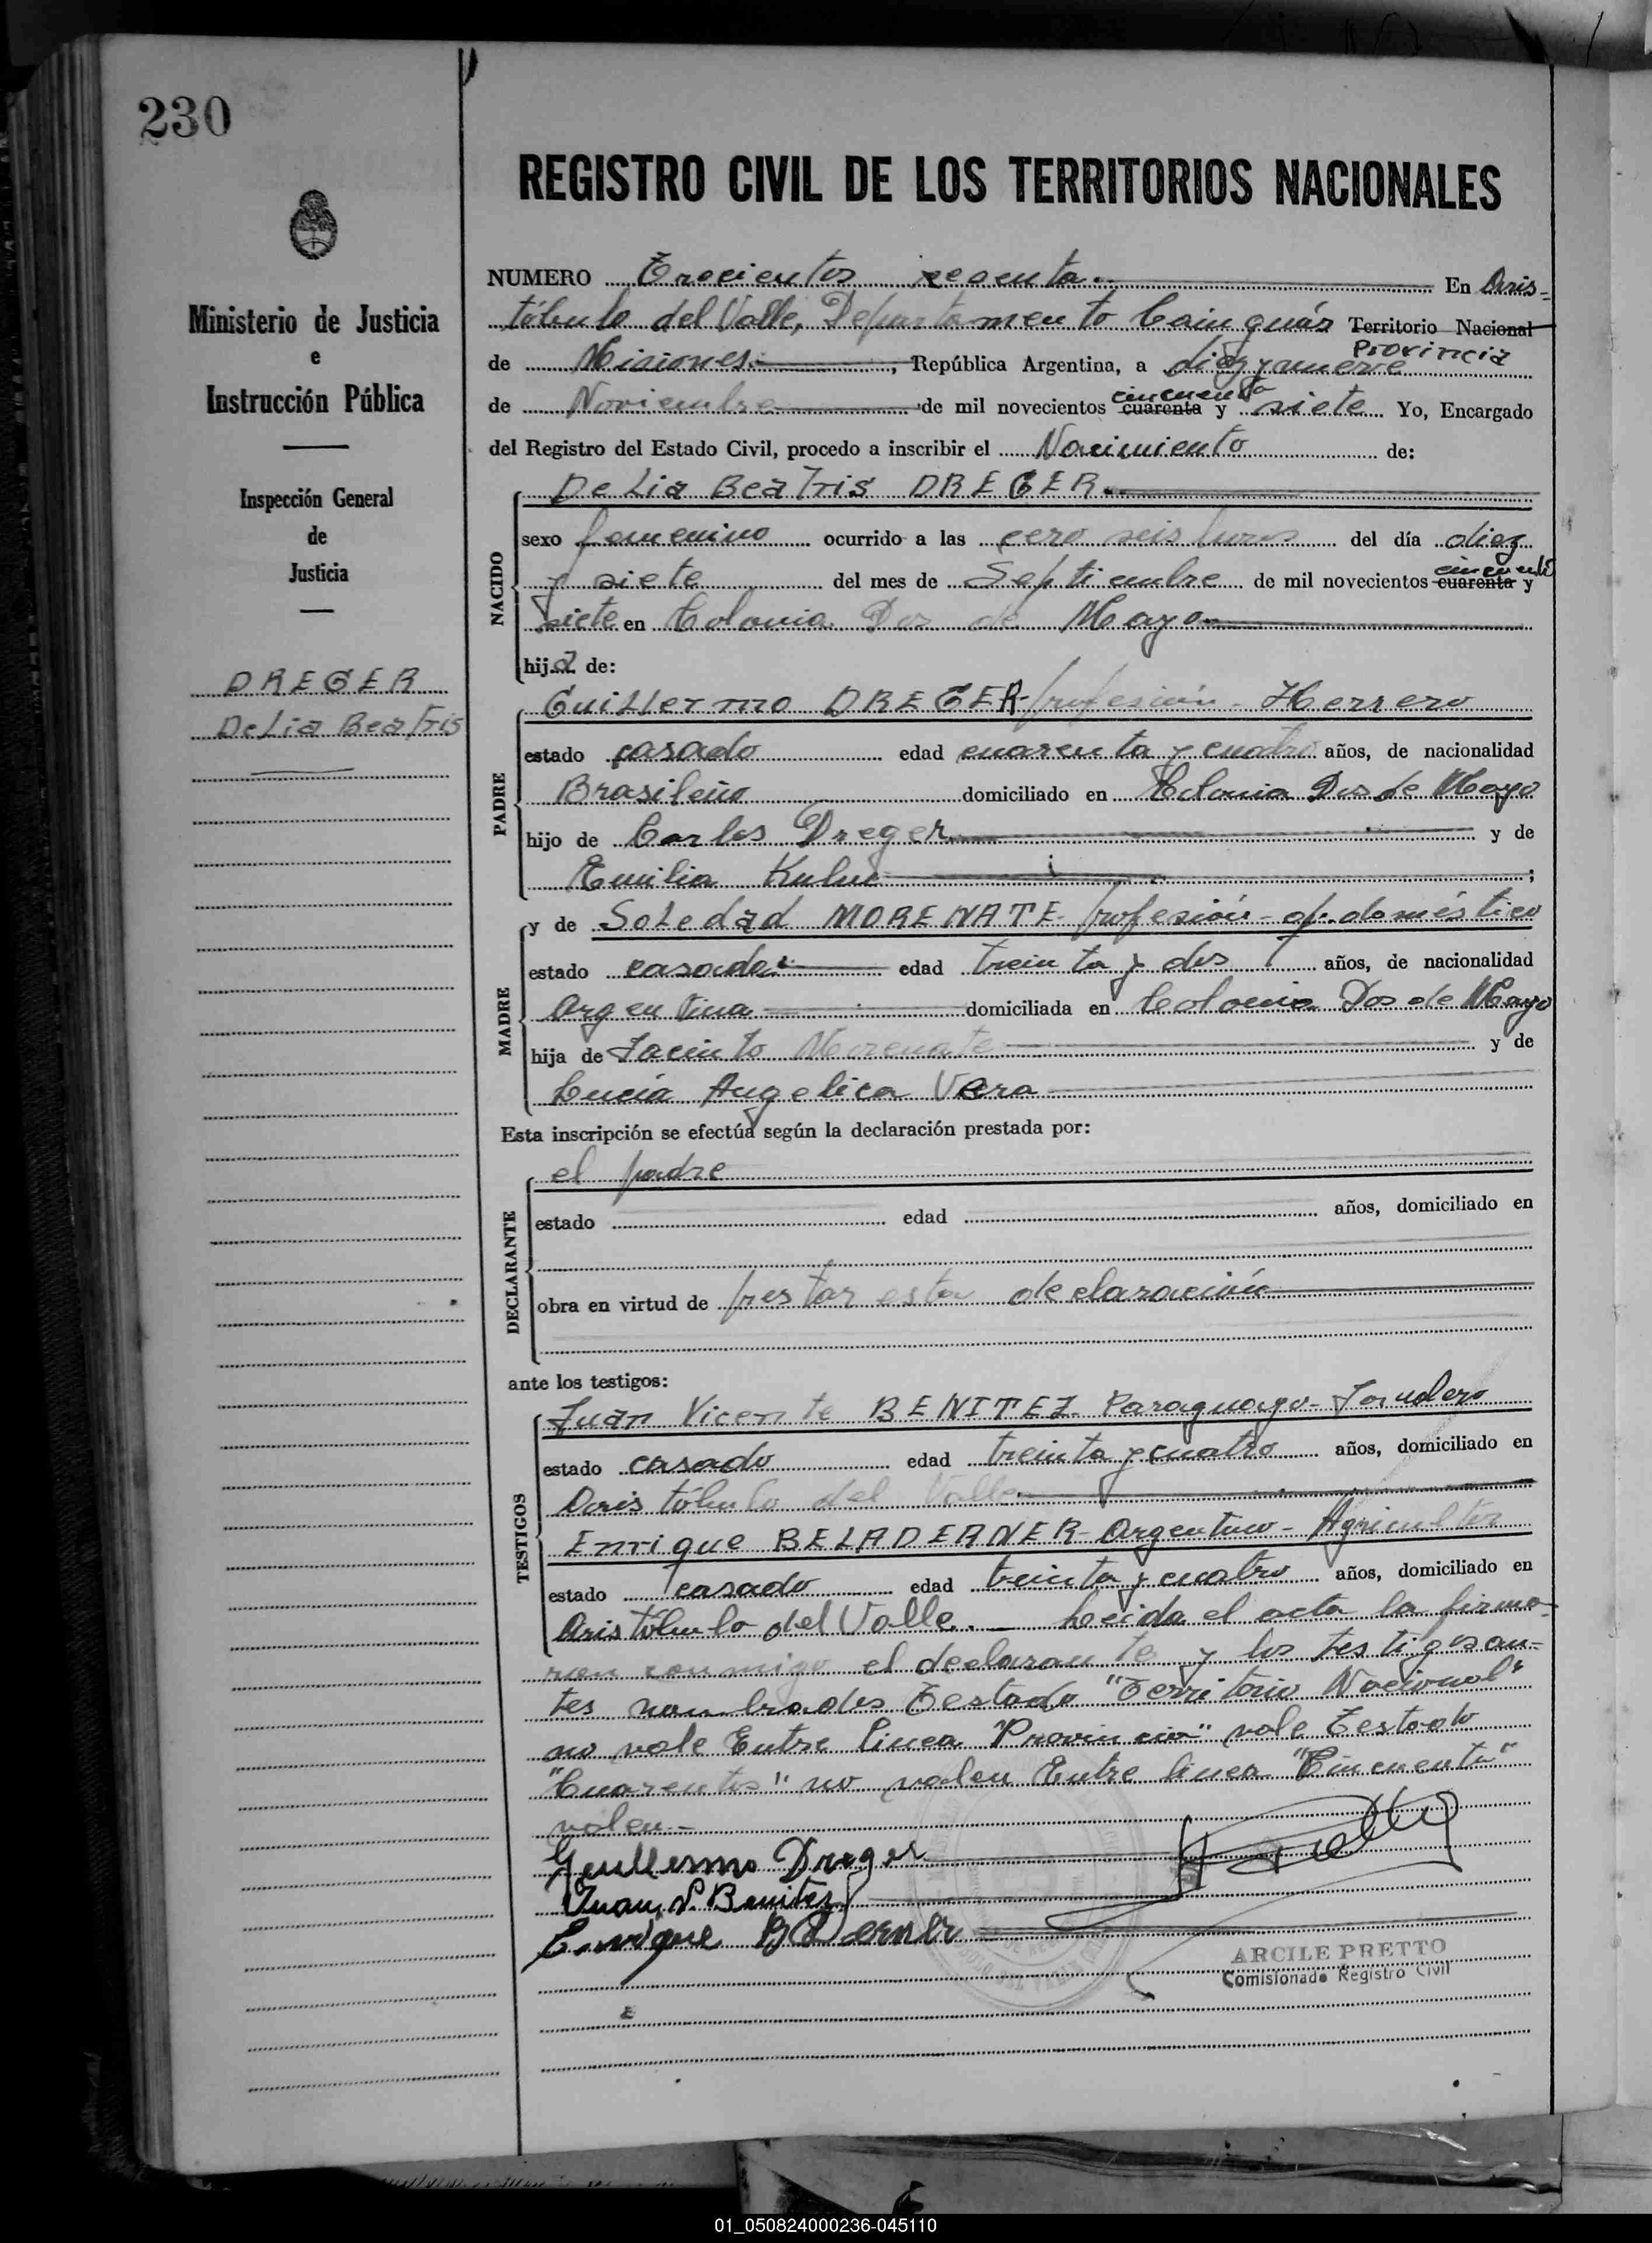 230
REGISTRO CIVIL DE LOS TERRITORIOS NACIONALES
Ministerio de Justicia
e
Instrucción Pública
Inspección General
de
Justicia
DREGER
Delia Beatris
NUMERO Trecientos sesenta. En Aris=
tóbulo del Valle, Departamento Cainguás Territorio Nacional
Provincia
de Misiones. , República Argentina, a diez y nueve
de Noviembre de mil novecientos cuarenta cincuenta y siete Yo, Encargado
del Registro del Estado Civil, procedo a inscribir el Nacimiento de:
Delia Beatris DREGER.
NACIDO
sexo femenino ocurrido a las cero seis horas del día diez
y siete del mes de Septiembre de mil novecientos cuarenta cincuenta y
siete en Colonia Dos de Mayo
hija de:
PADRE
Guillermo DREGER profesión - Herrero
estado casado edad cuarenta y cuatro años, de nacionalidad
Brasileño domiciliado en Colonia Dos de Mayo
hijo de Carlos Dreger y de
Emilia ;
MADRE
y de Soledad MORENATE profesión - q. doméstico
estado casada edad treinta y dos años, de nacionalidad
Argentina domiciliada en Colonia Dos de Mayo
hija de Jacinto Morenate y de
Lucía Angelica Vera
Esta inscripción se efectúa según la declaración prestada por:
DECLARANTE
el padre
estado edad años, domiciliado en
obra en virtud de prestar esta declaración
ante los testigos:
TESTIGOS
Juan Vicente BENITEZ. Paraguayo -
estado casado edad treinta y cuatro años, domiciliado en
Aristóbulo del Valle
Enrique BELADERNER - Argentino - Agricultor
estado casado edad treinta y cuatro años, domiciliado en
Aristóbulo del Valle. Leida el acta la firma=
ron conmigo el declarante y los testigos an=
tes nombrados Testado "Territorio Nacional"
no vale Entre linea "Provincia" vale Testado
"Cuarenta" no valen Entre linea "Cincuenta"
valen.-
Guillermo Dreger
Juan V. Benitez
Enrique B Derner
ARCILE PRETTO
Comisionado Registro Civil
01_050824000236-045110